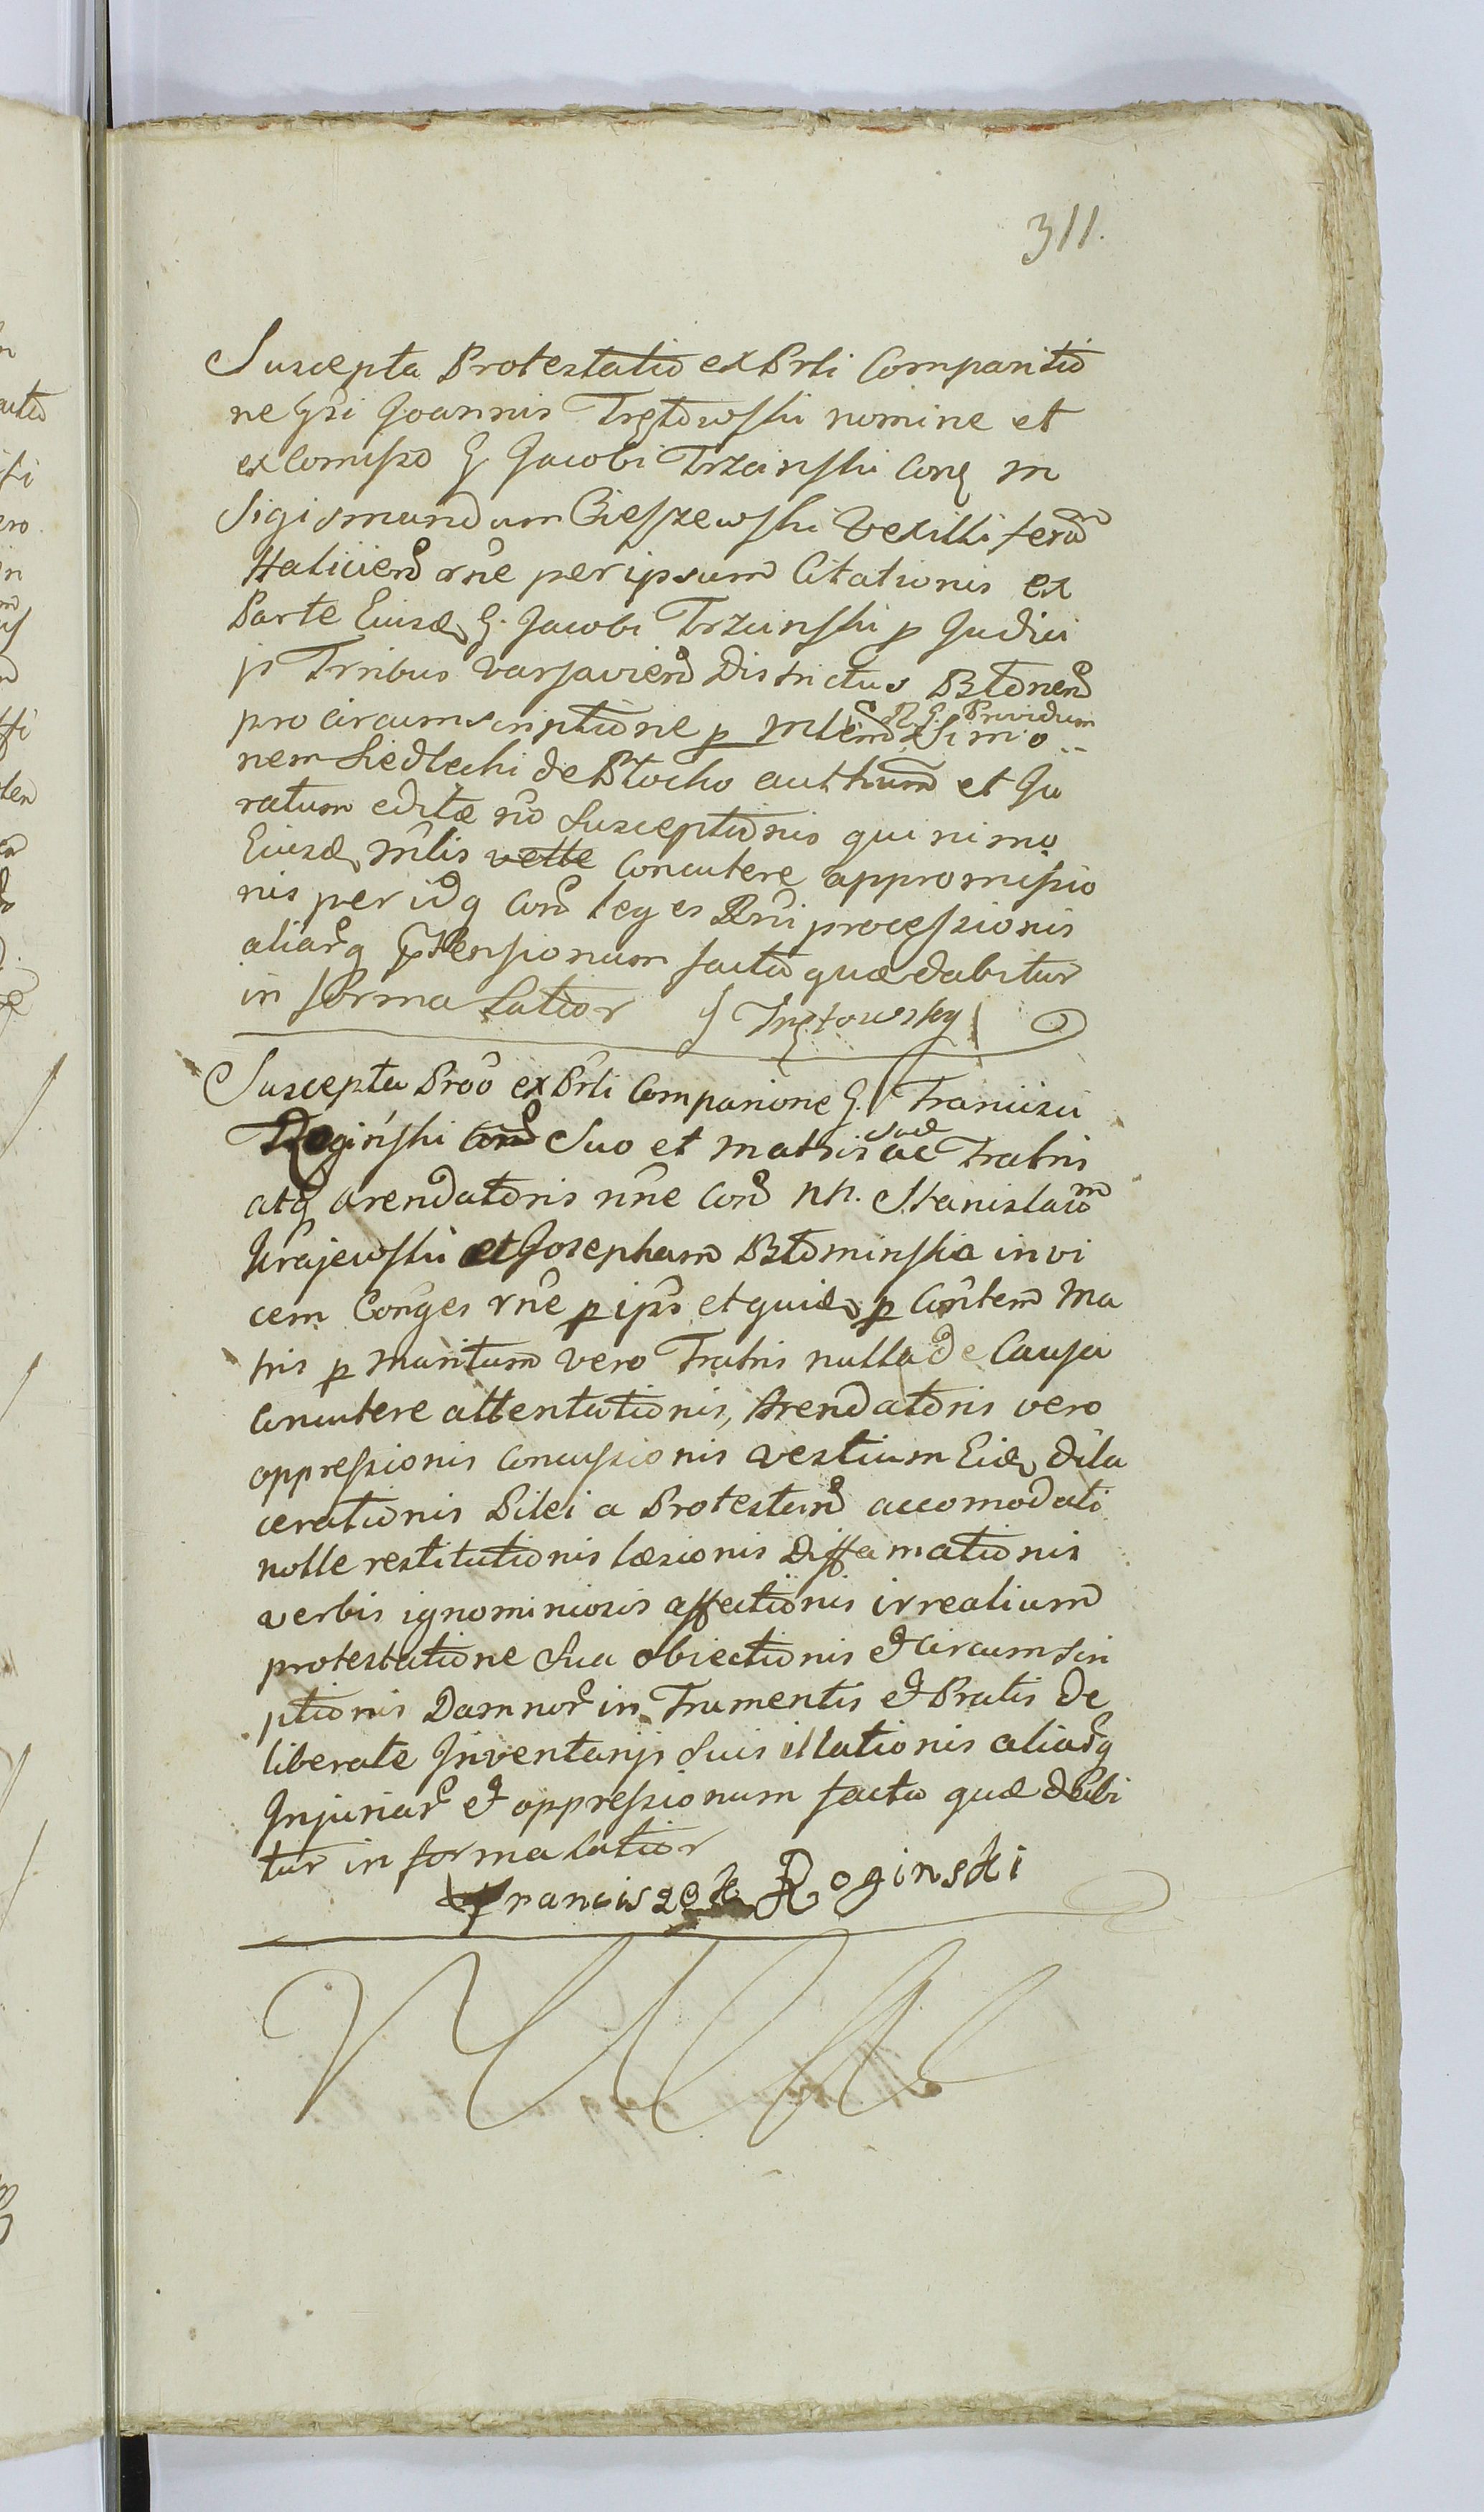 311.
Suscepta Protestatio ex Prli Comparitio
ne Gsi Joannis Trętowski nomine et
ex Comisso G Jacobi Trzcinski Conq m
Sigismundum Cieszewski Vexilliferum
Haliciens rne per ipsum Citationis ex
Parte Eiusd G. Jacobi Trzcinski p Judici
js Trnibus Varsaviens Districtus Błonens
pro circumscriptione p Providum Simo
nem Siedlecki de Płocho authum et Ju
ratum editæ nō Susceptionis quinimo
Eiusd Mlis velle Concutere appromissio
nis per idq Con leges Rni processionis
aliarq prtensionum facta quæ dabitur
in forma Latior J Trętowsky
Suscepta Prō ex Prli Comparione G. Francisci
Roginski Suo et Matris suæ ac Fratris
atq Arendatoris nne Con NN. Stanislaum
Krajewski et Josepham Błominska invi
cem Conges rne p ips et quid p Contem Ma
tris p Maritum vero Fratris nulla de Causa
Concutere attentationis, Arendatoris vero
oppressionis Concussionis vestium Eid dila
cerationis Pilei a Protestans accomodati
nolle restitutionis læsionis Diffamationis
verbis ignominiosis affectionis irrealium
protestatione Sua obiectionis et Circumscri
ptionis Damnor in Frumentis et Pratis de
liberate Inventarijs Suis illationis aliarq
Injuriar et oppressionum facta quæ dabi
tur in forma Latior
Franciszek Roginski